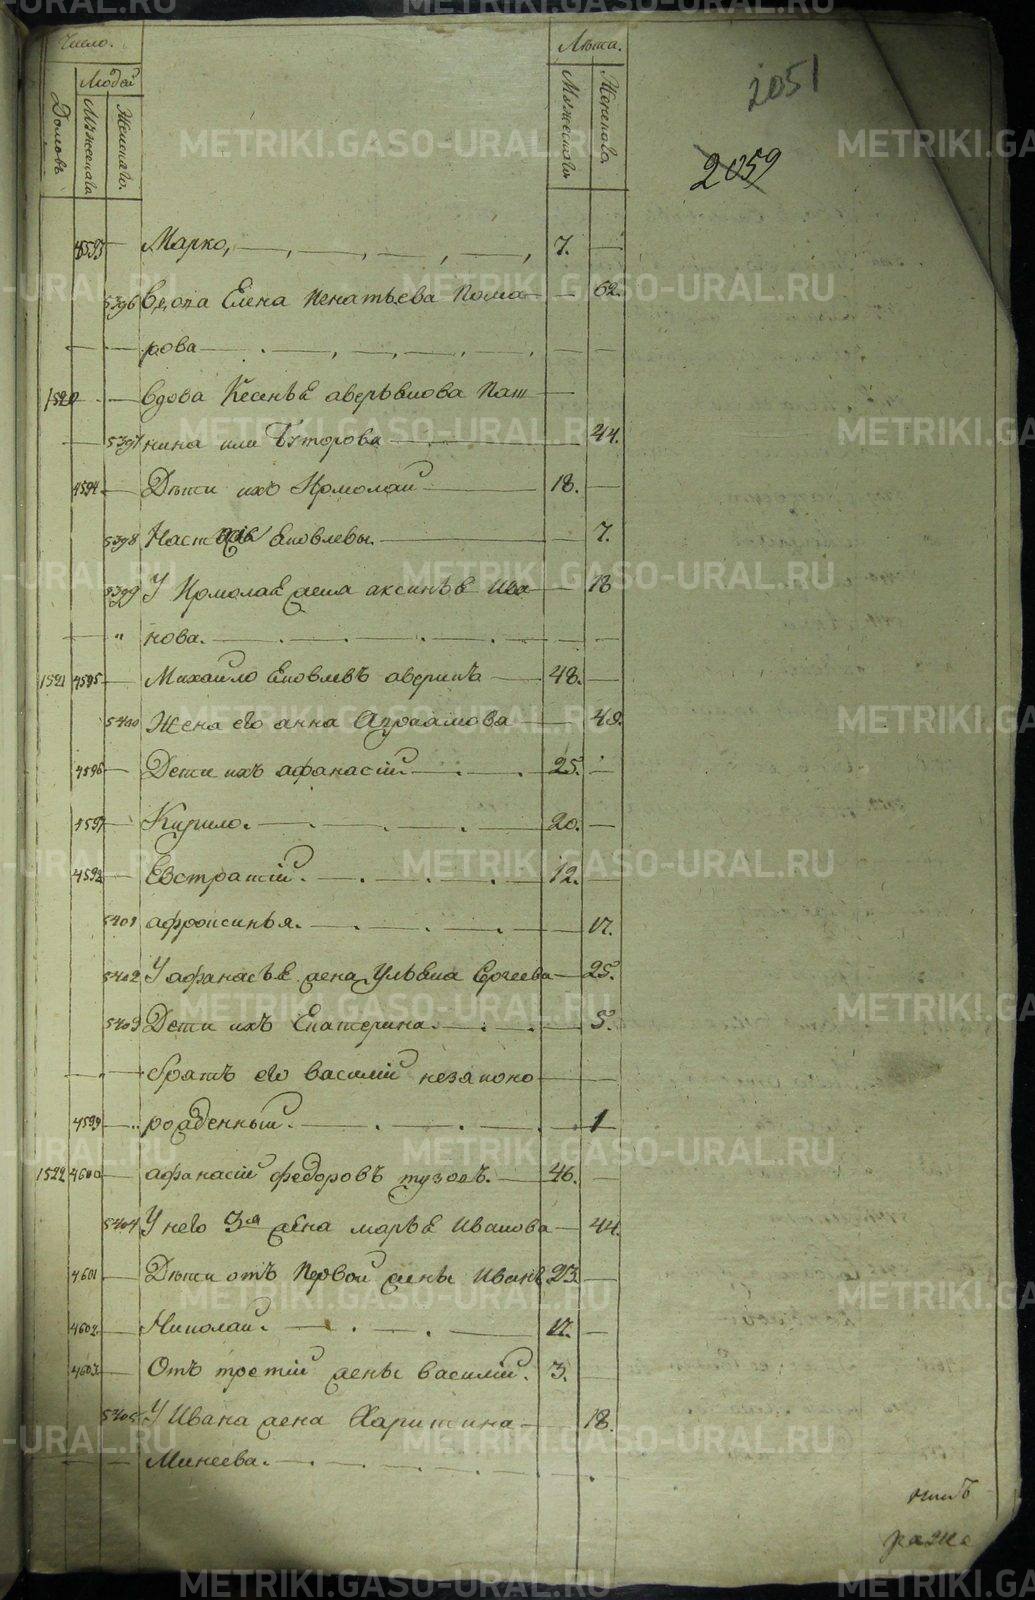 Число.
Лѣта.
Людей
Домовъ
Мужеска
Женска.
Мужеска.
Женска.
2051
2059
4593 Марко, 7.
5396 Вдова Елена Игнатьева Пома 62.
рова
1520 Вдова Ксенья аверьянова Паш
5397 нина или Буторова 44.
4594 Дѣти ихъ Ярмолай 18.
5398 Настасья Яковлевы. 7.
5399 У Ярмолая жена аксинья Ива 18
нова.
1521 4595 Михайло Яковлевъ аверинъ 48.
5400 Жена его анна Абраамова 49.
4596 Дети ихъ афанасий. 25.
4597 Кирило. 20.
4598 Евстратий. 12.
5401 афросинья. 17.
5402 У афанасья жена Ульяна Сергеева 25.
5403 Дети ихъ Екатерина. 5.
братъ его василий незаконо
4599 рожденный. 1
1522 4600 афанасий федоровъ тузовъ. 46.
5404 У него 3я жена марья Иванова 44.
4601 Дѣти отъ Первой жены Иванъ 23.
4602. Николай. 17.
4603. Отъ третий жены василий. 3.
5405 У Ивана жена Харитина 18.
Минеева.
METRIKI.GASO-URAL.RU